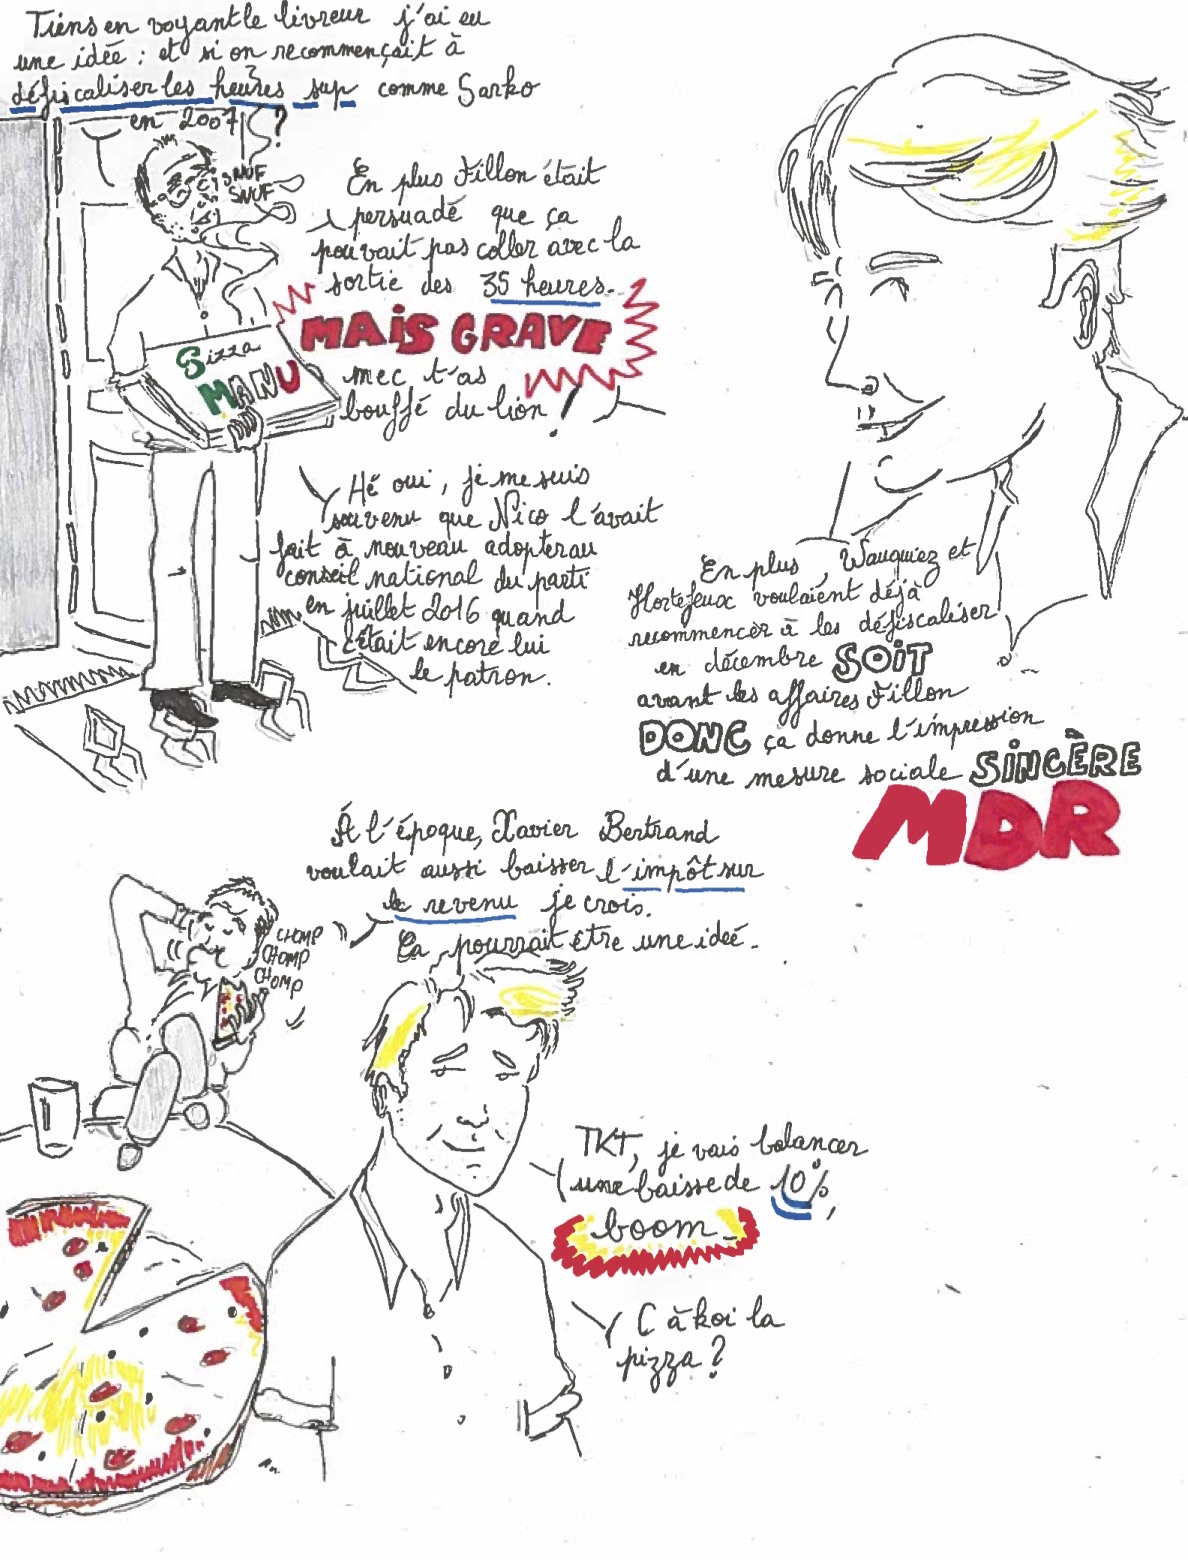 Tiens en voyant le livreur j'ai eu
une idée : et si on recommençait à
défiscaliser les heures sup comme Sarko
en 2007 ?
SNUF
SNUF
En plus Fillon était
persuadé que ça
pouvait pas coller avec la
sortie des 35 heures.
MAIS GRAVE
mec t'as
bouffé du lion !
Pizza
MANU
Hé oui, je me suis
souvenu que Nico l'avait
fait à nouveau adopter au
conseil national du parti
en juillet 2016 quand
c'était encore lui
le patron.
En plus, Wauquiez et
Hortefeux voulaient déjà
recommencer à les défiscaliser
en décembre SOIT
avant les affaires Fillon
DONC ça donne l'impression
d'une mesure sociale SINCÈRE
MDR
À l'époque, Xavier Bertrand
voulait aussi baisser l'impôt sur
le revenu je crois.
Ca pourrait être une ideé.
CHOMP
CHOMP
CHOMP
TKT, je vais balancer
une baisse de 10%,
boom
C à koi la
pizza ?